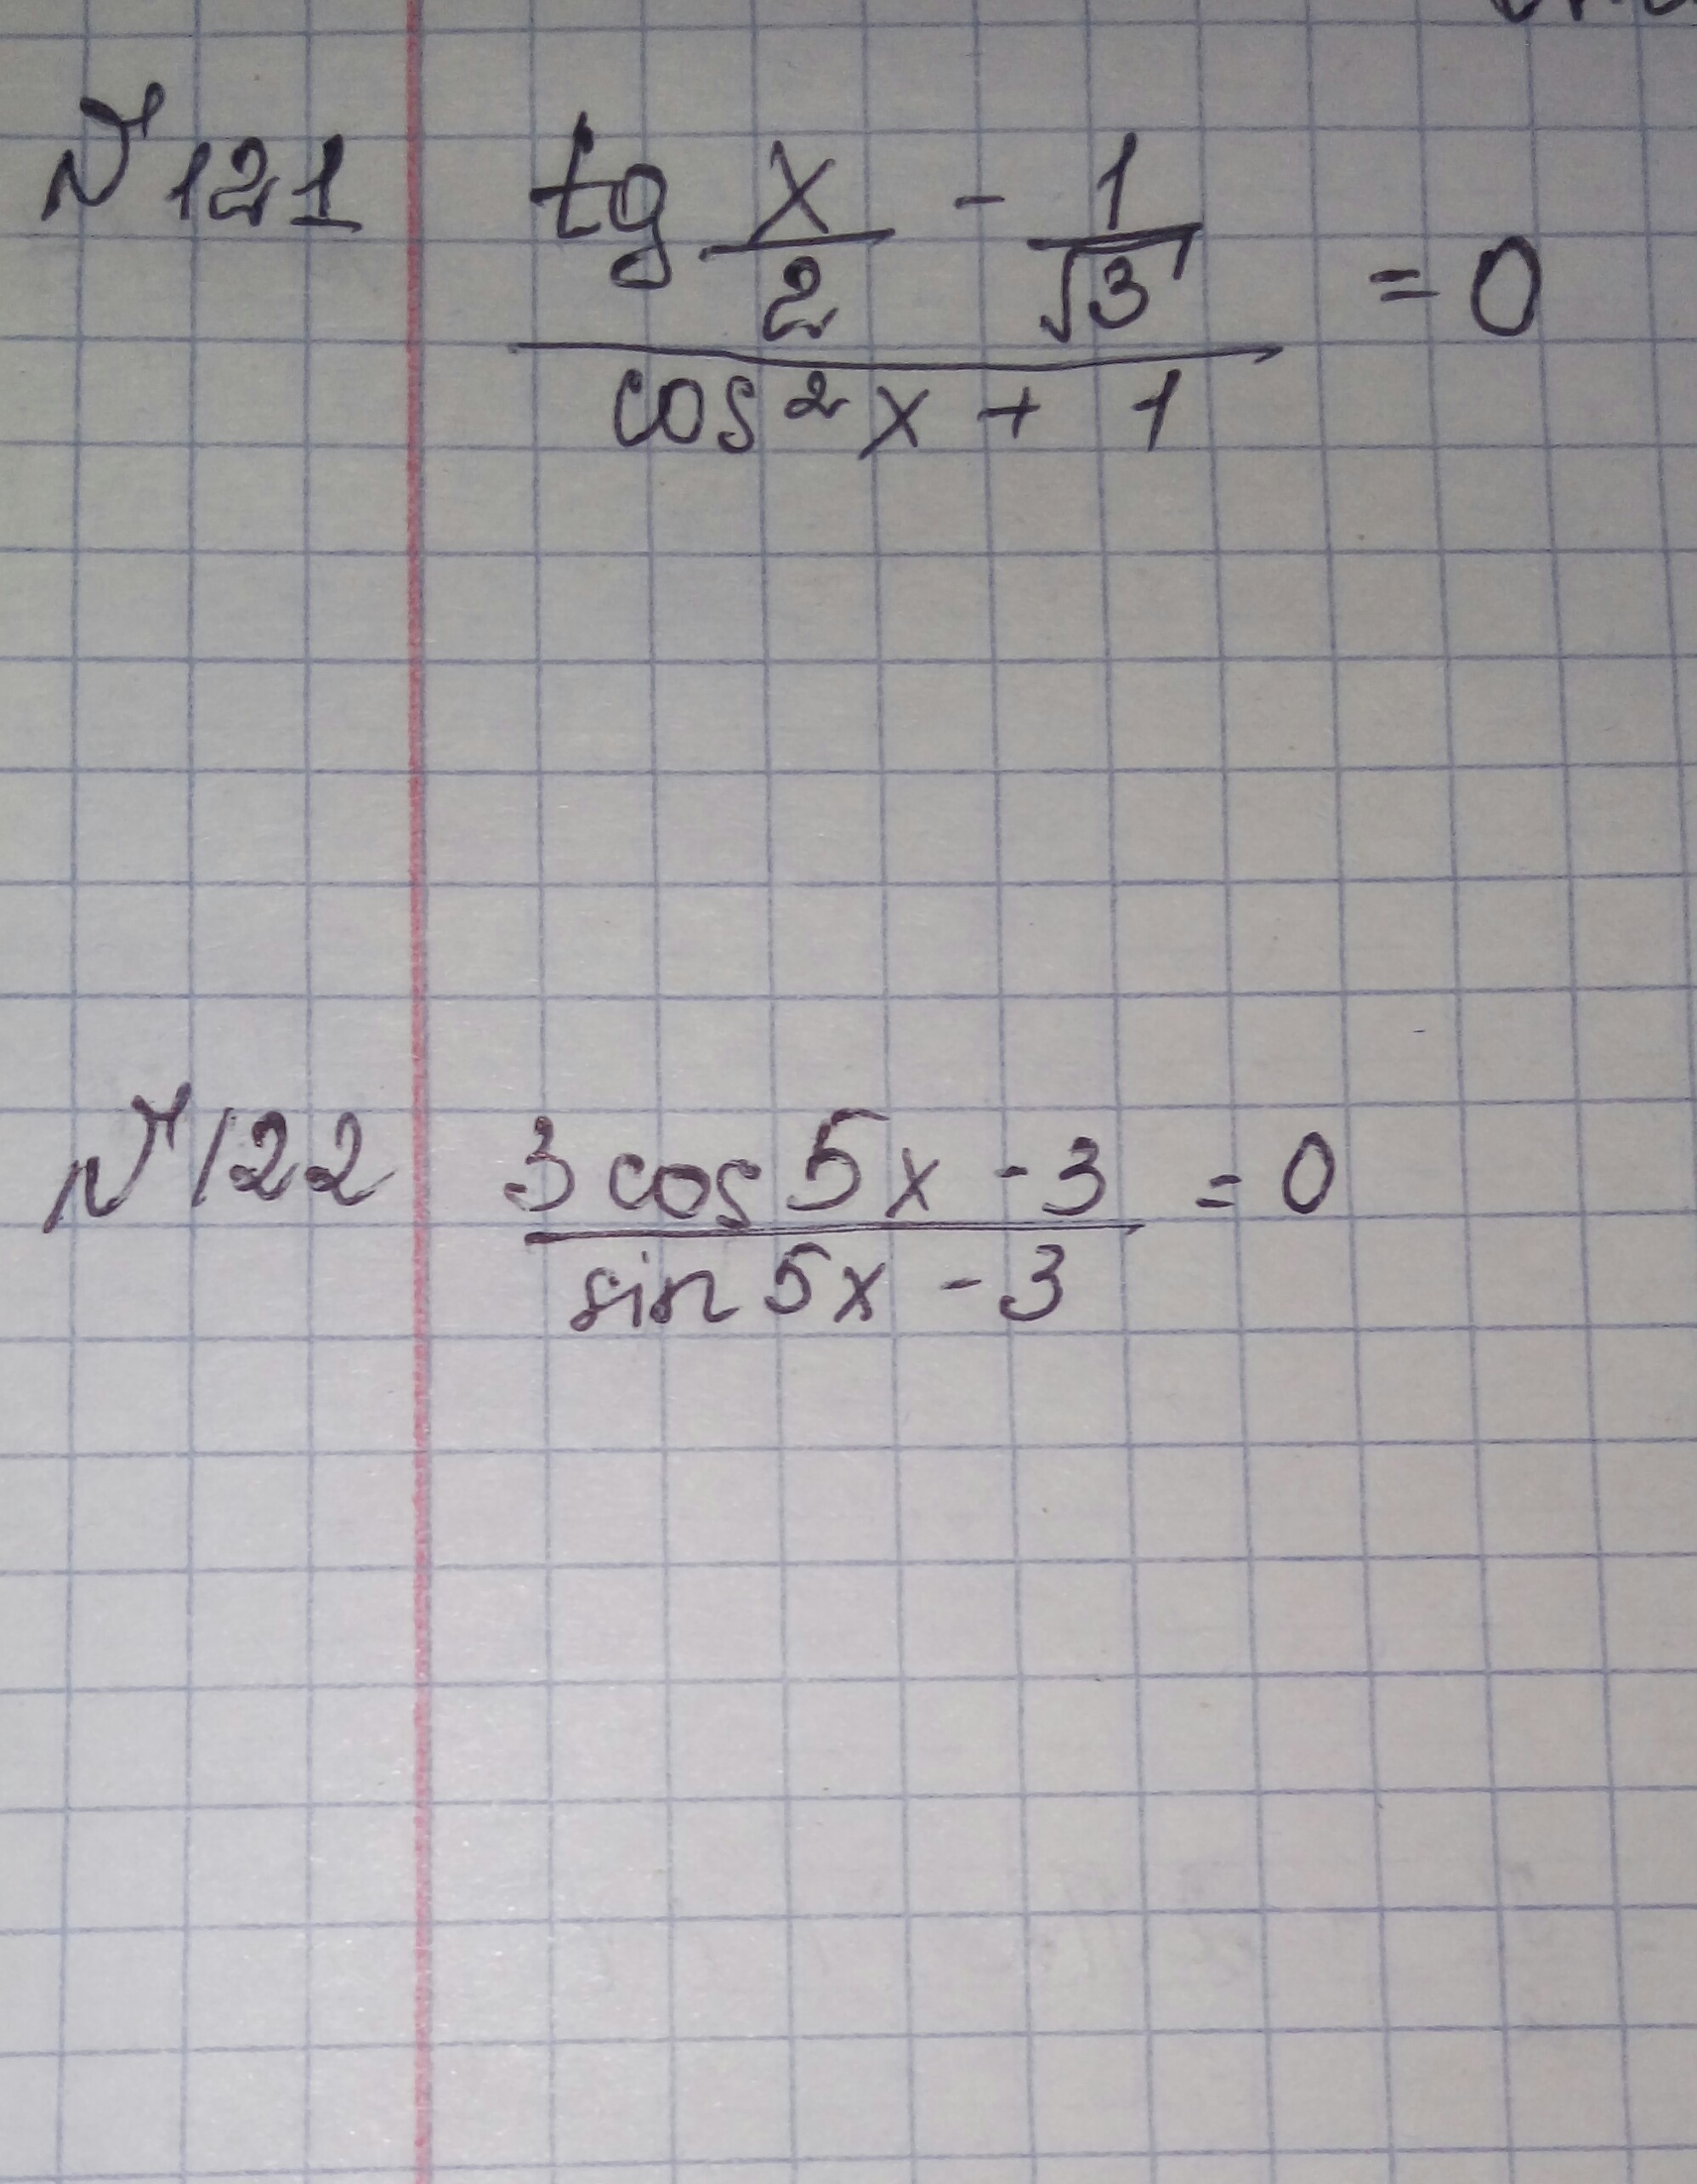 № 121 tg x/2 - 1/√3 = 0
cos² x + 1
№ 122 3 cos 5x - 3 = 0
sin 5x - 3